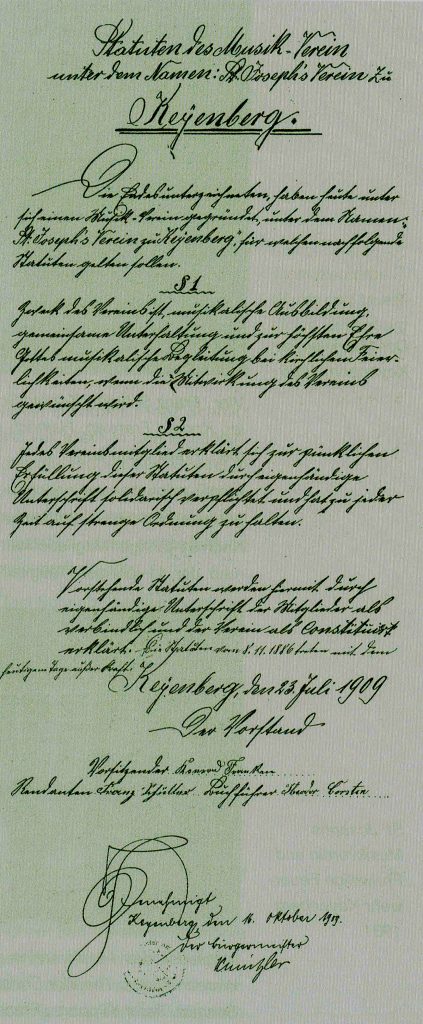 Statuten des Musik-Verein
unter dem Namen: St. Joseph's Verein zu
Keyenberg.
Die Endesunterzeichneten, haben heute unter
sich einen Musik-Verein gegründet, unter dem Namen:
"St. Joseph's Verein zu Keyenberg", für welchen nachfolgende
Statuten gelten sollen.
§ 1
Zweck des Vereins ist, musikalische Ausbildung,
gemeinsame Unterhaltung und zur höchsten Ehre
Gottes musikalische Begleitung bei kirchlichen Feier-
lichkeiten, wenn die Mitwirkung des Vereins
gewünscht wird.
§ 2
Jedes Vereinsmitglied erklärt sich zur pünktlichen
Erfüllung dieser Statuten durch eigenhändige
Unterschrift solidarisch verpflichtet und hat zu jeder
Zeit auf strenge Ordnung zu halten.
Vorstehende Statuten werden hermit durch
eigenhändige Unterschrift der Mitglieder als
verbindlich und der Verein als Constituirt
erklärt. Die Statuten vom 8.11.1886 treten mit dem
heutigem Tage außer Kraft.
Keyenberg, den 23. Juli 1909
Der Vorstand
Vorsitzender Konrad Franken
Rendanten Franz Schüller Buchführer
Genehmigt
Keyenberg, den 16. Oktober 1909.
Der Bürgermeister